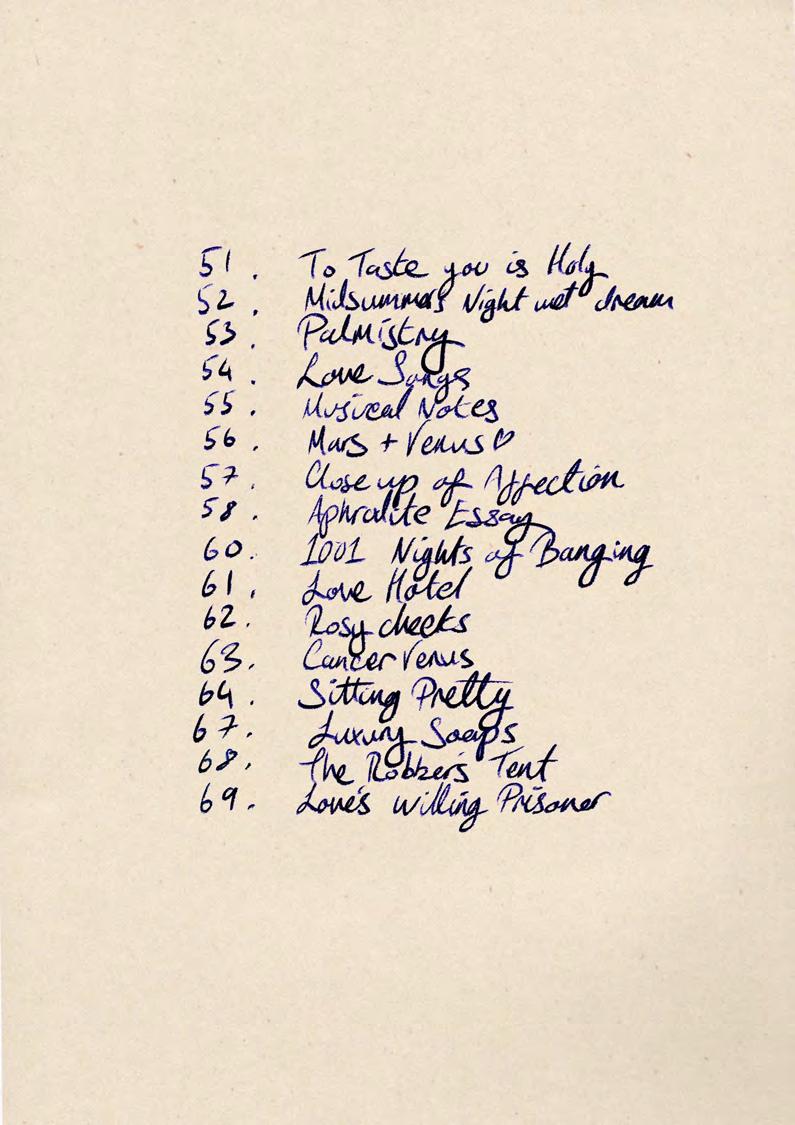 51. To Taste you is Holy
52. Midsummers Night wet dream
53. Palmistry
54. Love Songs
55. Musical Notes
56. Mars + Venus ♡
57. Close up of Affection
58. Aphrodite Essay
60. 1001 Nights of Banging
61. Love Hotel
62. Rosy cheeks
63. Cancer Venus
64. Sitting Pretty
67. Luxury Soaps
68. The Robber's Tent
69. Love's willing Prisoner